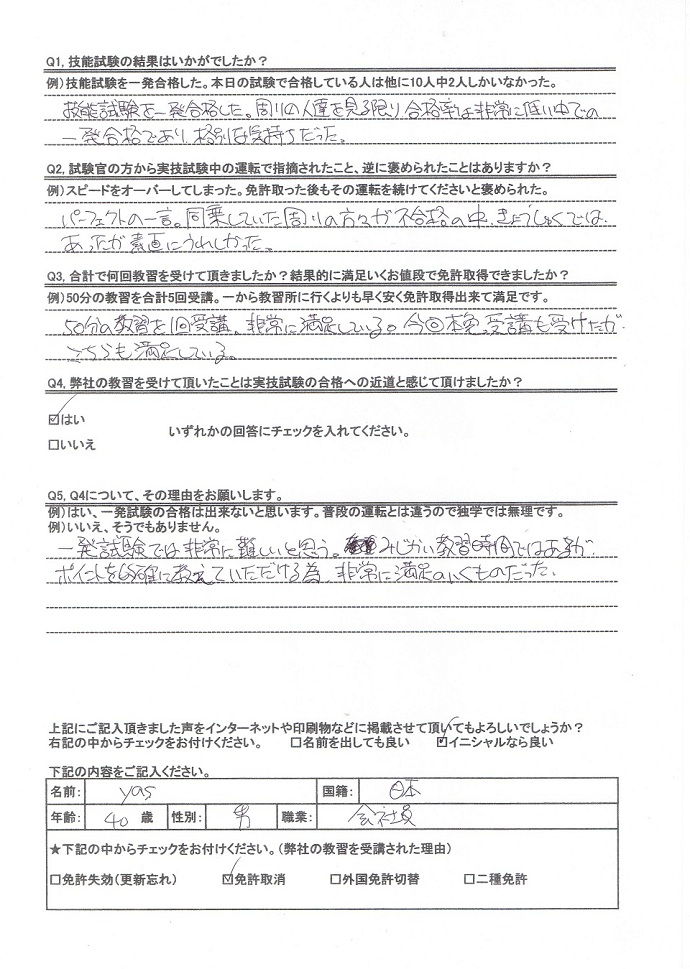 Q1, 技能試験の結果はいかがでしたか？
例）技能試験を一発合格した。本日の試験で合格している人は他に10人中2人しかいなかった。
技能試験を一発合格した。周りの人達を見る限り、合格率は非常に低い中での
一発合格であり、格別な気持ちだった。
Q2, 試験官の方から実技試験中の運転で指摘されたこと、逆に褒められたことはありますか？
例）スピードをオーバーしてしまった。免許取った後もその運転を続けてくださいと褒められた。
パーフェクトの一言。同乗していた周りの方々が不合格の中、きょうしゅくでは、
あったが素直にうれしかった。
Q3, 合計で何回教習を受けて頂きましたか？結果的に満足いくお値段で免許取得できましたか？
例）50分の教習を合計5回受講。一から教習所に行くよりも早く安く免許取得出来て満足です。
50分の教習を1回受講。非常に満足している。今回本免受講も受けたが、
こちらも満足している。
Q4, 弊社の教習を受けて頂いたことは実技試験の合格への近道と感じて頂けましたか？
☑はい
いずれかの回答にチェックを入れてください。
□いいえ
Q5, Q4について、その理由をお願いします。
例）はい、一発試験の合格は出来ないと思います。普段の運転とは違うので独学では無理です。
例）いいえ、そうでもありません。
一発試験では非常に難しいと思う。みじかい教習時間ではあるが、
ポイントを的確に教えていただける為、非常に満足のいくものだった。
上記にご記入頂きました声をインターネットや印刷物などに掲載させて頂いてもよろしいでしょうか？
右記の中からチェックをお付けください。 □名前を出しても良い ☑イニシャルなら良い
下記の内容をご記入ください。
名前： yas 国籍： 日本
年齢： 40 歳 性別： 男 職業： 会社員
★下記の中からチェックをお付けください。（弊社の教習を受講された理由）
□免許失効（更新忘れ） ☑免許取消 □外国免許切替 □二種免許